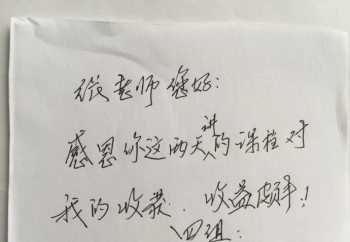 张老师您好:
感恩你这两天讲的课程对
我的收获. 收益颇丰!
四组: